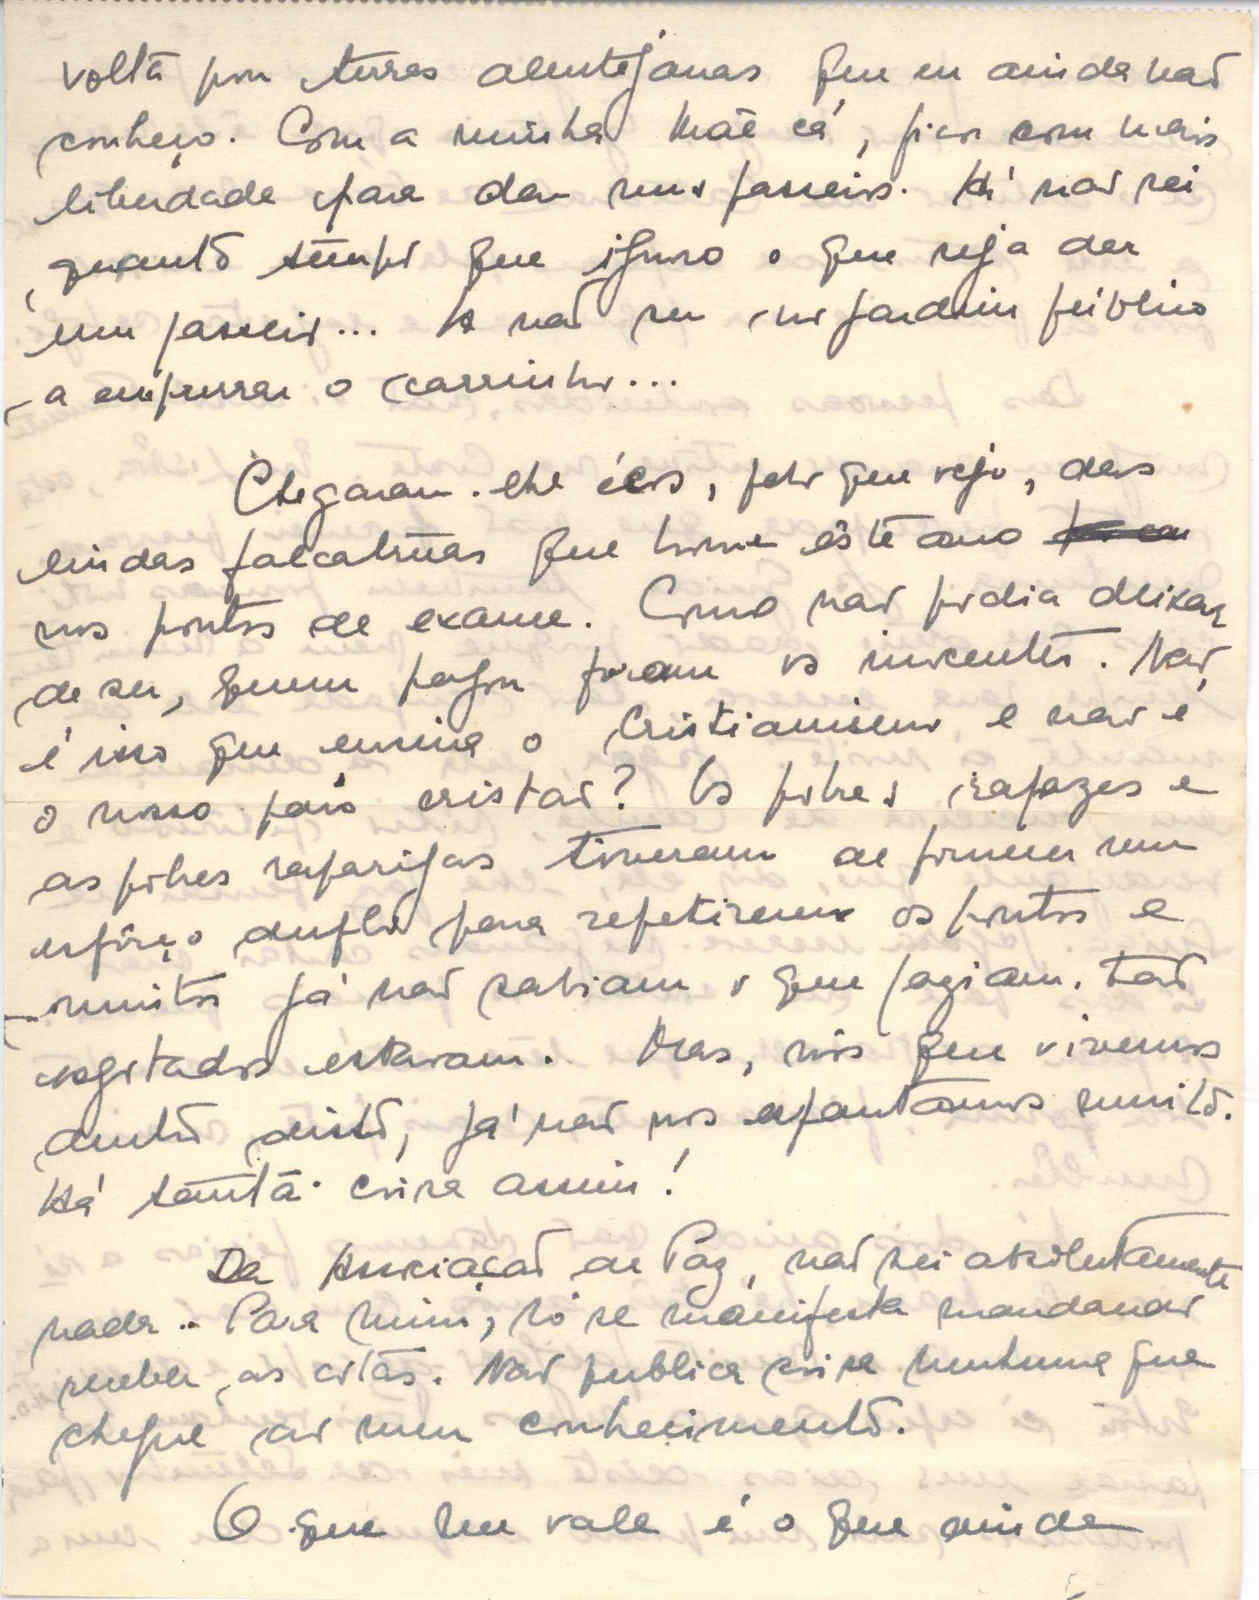 volta por terras alentejanas que eu ainda não
conheço. Com a minha Mãe cá, fico com mais
liberdade para dar uns passeios. Há não sei
quanto tempo que ignoro o que seja dar
um passeio... A não ser no jardim público
a empurrar o carrinho...
Chegaram-lhe écos, pelo que vejo, das
lindas falcatruas que houve êste ano
nos pontos de exame. Como não podia deixar
de ser, quem pagou foram os inocentes. Não
é isso que ensina o Cristianismo e não é
o nosso país cristão? Os pobres rapazes e
as pobres raparigas tiveram de fornecer um
esfôrço duplo para repetirem os pontos e
muitos já não sabiam o que faziam. Tão
esgotados estavam. Mas, nós que vivemos
dentro disto, já não nos espantamos muito.
Há tanta coisa assim!
Da Associação de Paz, não sei absolutamente
nada. Para mim, só se manifesta mandando
receber as cotas. Não publica coisa nenhuma que
chegue ao meu conhecimento.
O que me vale é o que ainda